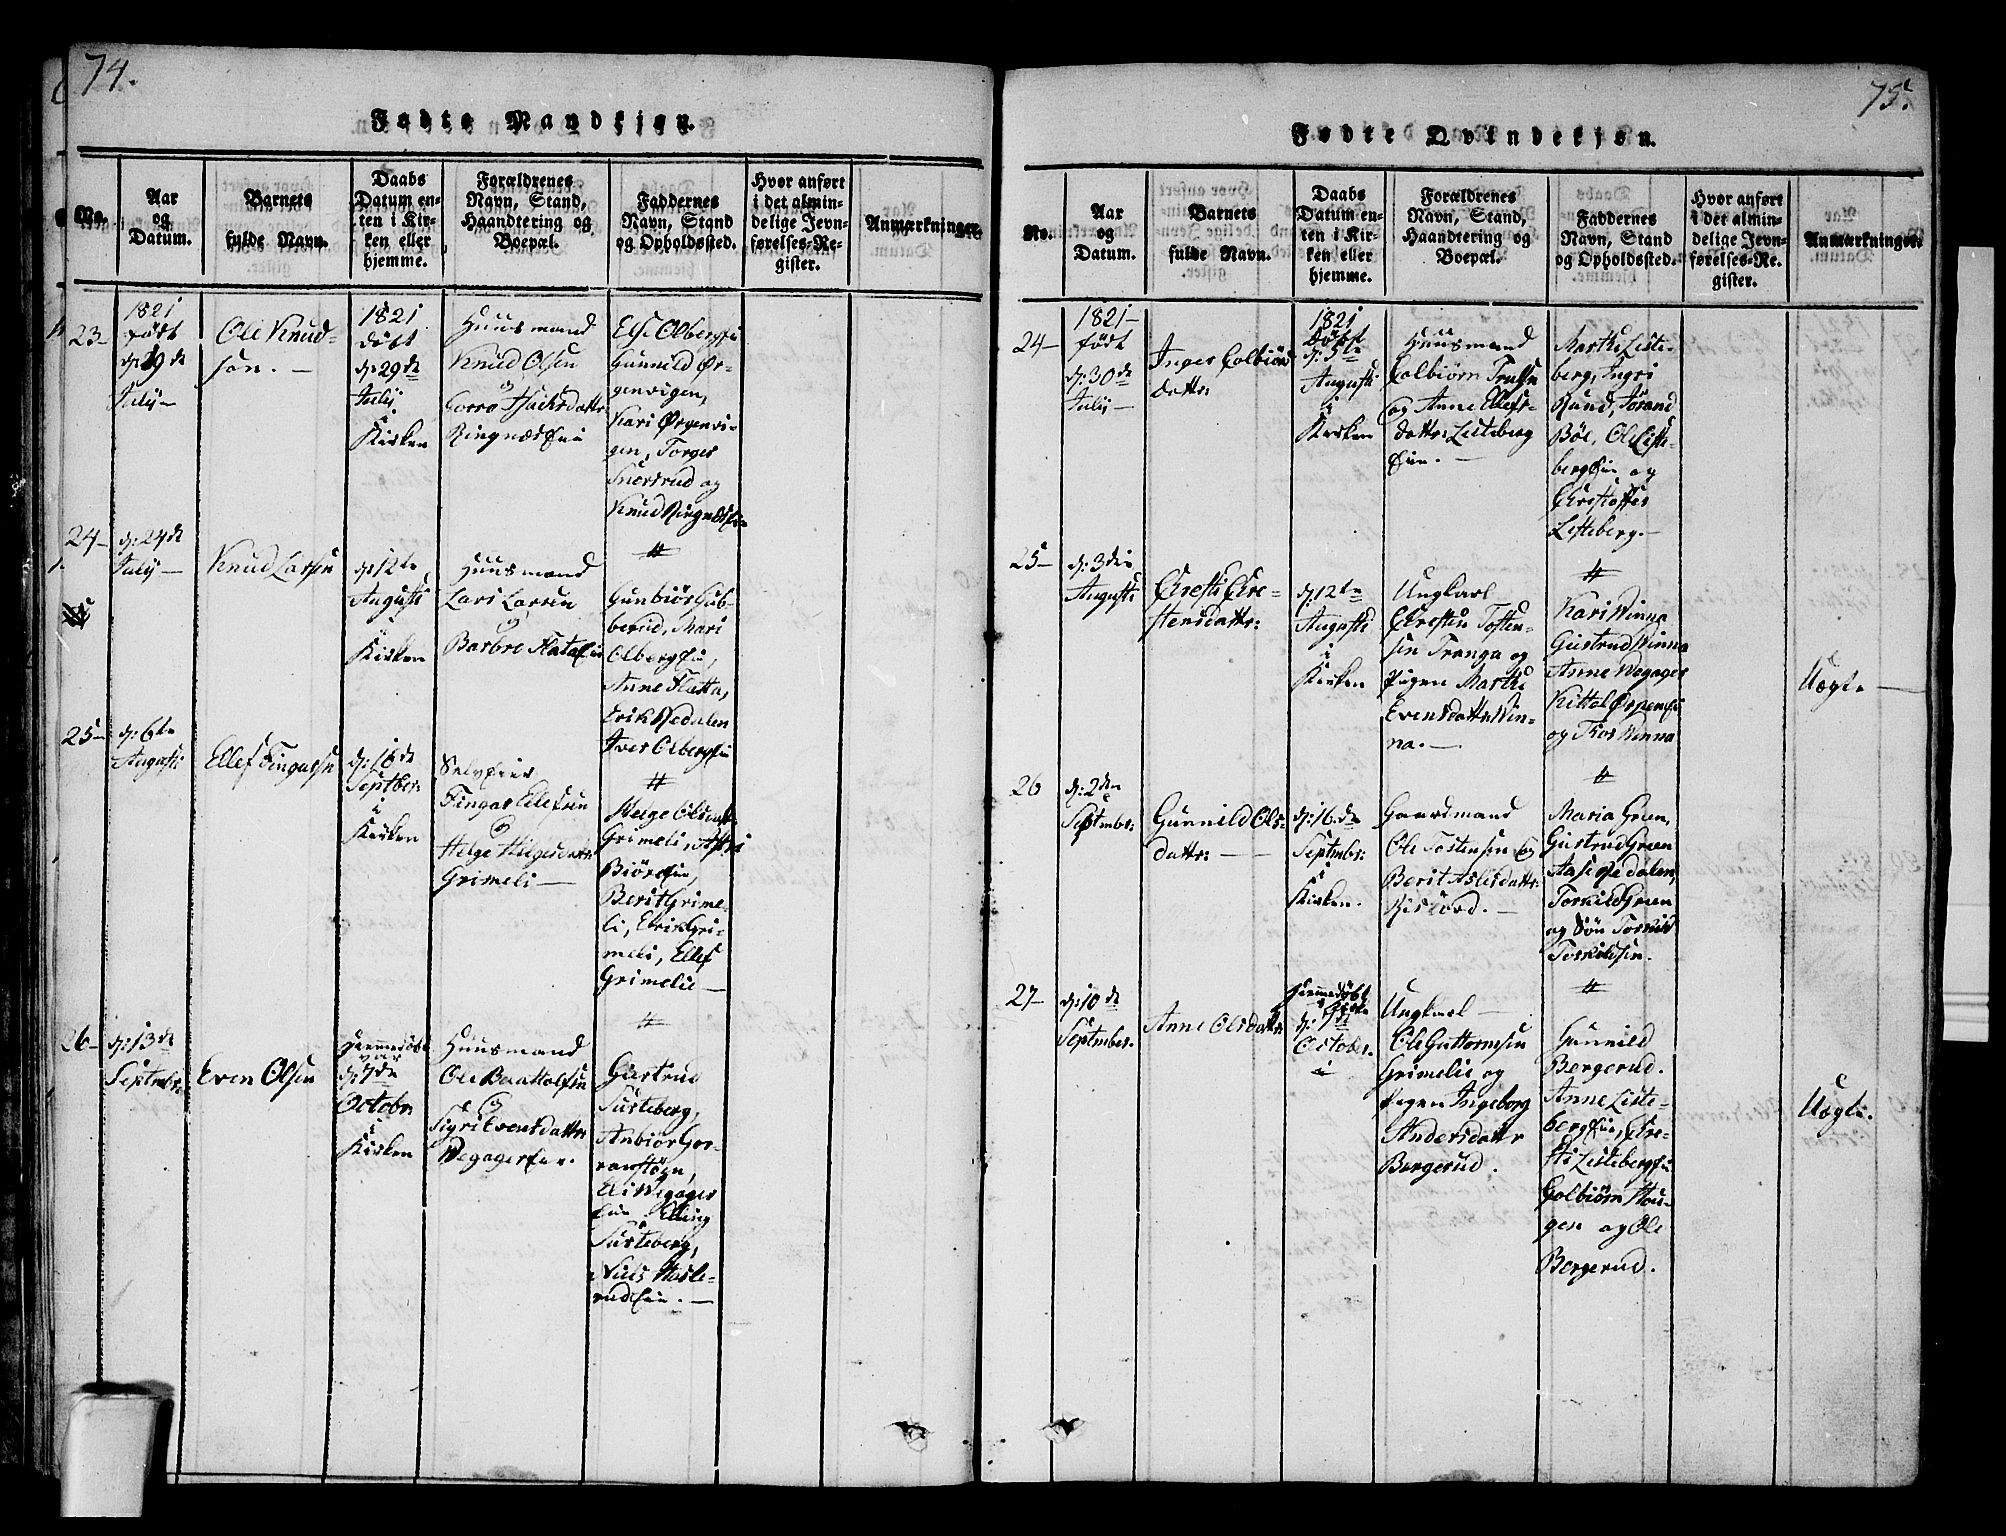 74.
Fødte Mandkjøn.
No.
Aar
og
Datum.
Barnets
fulde Navn.
Daabs
Datum en-
ten i Kir-
ken eller
hjemme.
Forældrenes
Navn, Stand,
Haandtering og
Boepæl.
Faddernes
Navn, Stand
og Opholdssted.
Hvor anført
i det almin-
delige Jevn-
førelses-Re-
gister.
Anmærkninger.
23-
1821
født
d: 19de
July-
Ole Knud-
søn. -
1821
døbt
d: 29de
July.
Kirken
Huusmand
Knud Olsen
og
Ringnæs Eie
Else Olberg Eie
Gunnild Ør-
genvigen,
Kari Ørgenvi-
gen, Torger
Snersrud og
Knud Ringnæs Eie
24-
d: 24de
July-
Knud Larsen
d: 12te
Augusti
i
Kirken
Huusmand
Lars Larsen
og
Barbro Flata Eie
Gunbiør Gub-
berud, Mari
Olberg Eie,
Anne Flatta,
Erik Medalen
Iver Olberg Eie
25-
d: 6te
Augusti
Ellef Fingarsen
d: 16de
Septbr:
i
Kirken
Selveier
Fingar Ellefsen
og
Helge Helgesdattr:
Grimeli -
Helge Olsdattr
Grimeli,
Biøre Eie,
Berit Grime-
li, Erik Gri-
meli, Ellef
Grimelie -
26-
d: 13de
Septembr:
Even Olsen
Hjemmedøbt
var
d: 7de
Octobr
i
Kirken
Huusmand
Ole Baattolfsen
og
Sigri Evensdattr:
Wegager Eie.
Giertrud
Susteberg,
Anbiør Gor-
ranstøen,
Eli Wegager
Eie. Elling
Susteberg,
Niels Hasle-
rud Eie. -
75.
Fødte Qvindekjøn.
No.
Aar
og
Datum.
Barnets
fulde Navn.
Daabs
Datum en-
ten i Kir-
ken eller
hjemme.
Forældrenes
Navn, Stand,
Haandtering og
Boepæl.
Faddernes
Navn, Stand
og Opholdssted.
Hvor anført
i det almin-
delige Jevn-
førelses-Re-
gister.
Anmærkninger.
24-
1821-
født
d: 30de
July-
Inger Colbiøns
dattr:
1821
Døbt
d: 5te
Augusti
i
Kirken
Huusmand
Colbiørn Trulsen
og Anne Ellefs-
dattr: Listeberg
Eie. -
Marthe Liste-
berg, Ingri
Rund, Torand
Bøe, Ole Liste-
berg Eie og
Christoffer
Listeberg. -
25-
d: 3die
Augusti
Christi Chri-
stensdattr:
d: 12te
Augusti
i
Kirken
Ungkarl
Christen Tosten-
sen Tranga og
Pigen Marthe
Evensdattr Win-
na. -
Kari Winna
Giertrud Winna
Anne Wegager
Kittol Ørpen Eie
og Thor Winna
Uægte -
26
d: 2den
Septembr:
Gunnild Ols-
dattr: -
d: 16de
Septembr:
i
Kirken.
Gaardmand
Ole Tostensen og
Berit Aslesdattr:
Ristord. -
Maria Green,
Giertrud Green
Aase Medalen,
Torkild Green
og Søn Torkild
Torkildsen.
27-
d: 10de
Septembr.
Anne Olsdattr:
Hjemmedøbt
d: 7de
October.
Ungkarl -
Ole Guttormsen
Grimelie og
Pigen Ingeborg
Andersdattr
Bergerud.
Gunnild
Bergerud.
Anne Liste-
berg Eie, Chri-
sti Listeberg Eie
Golbiørn Hau-
gen og Ole
Bergerud.
Uægte.